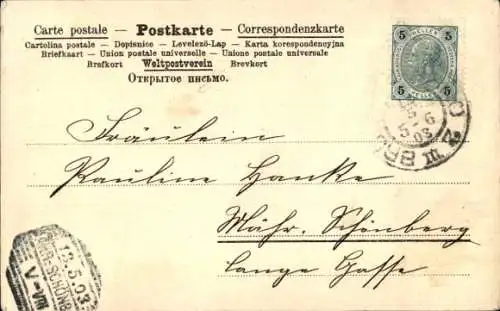 Carte postale — Postkarte — Correspondenzkarte
Cartolina postale — Dopisnice — Levelező-Lap — Karta korespondencyjna
Briefkaart — Union postale universelle — Unione postale universale
Brefkort Weltpostverein Brevkort
Открытое письмо.
5 5
HELLER
5 5
Fräulein
Pauline Hanke
Mähr. Schönberg
lange Gasse
13.5.03